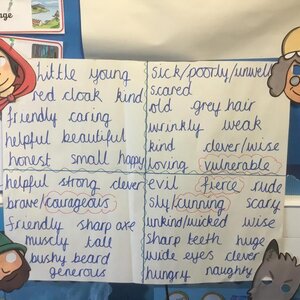 little young
red cloak kind
friendly caring
helpful beautiful
honest small happy
sick/poorly/unwell
scared
old grey hair
wrinkly weak
kind clever/wise
loving vulnerable
helpful strong clever
brave/courageous
friendly sharp axe
muscly tall
bushy beard
generous
evil fierce rude
sly/cunning scary
unkind/wicked wise
sharp teeth huge
wide eyes clever
hungry naughty